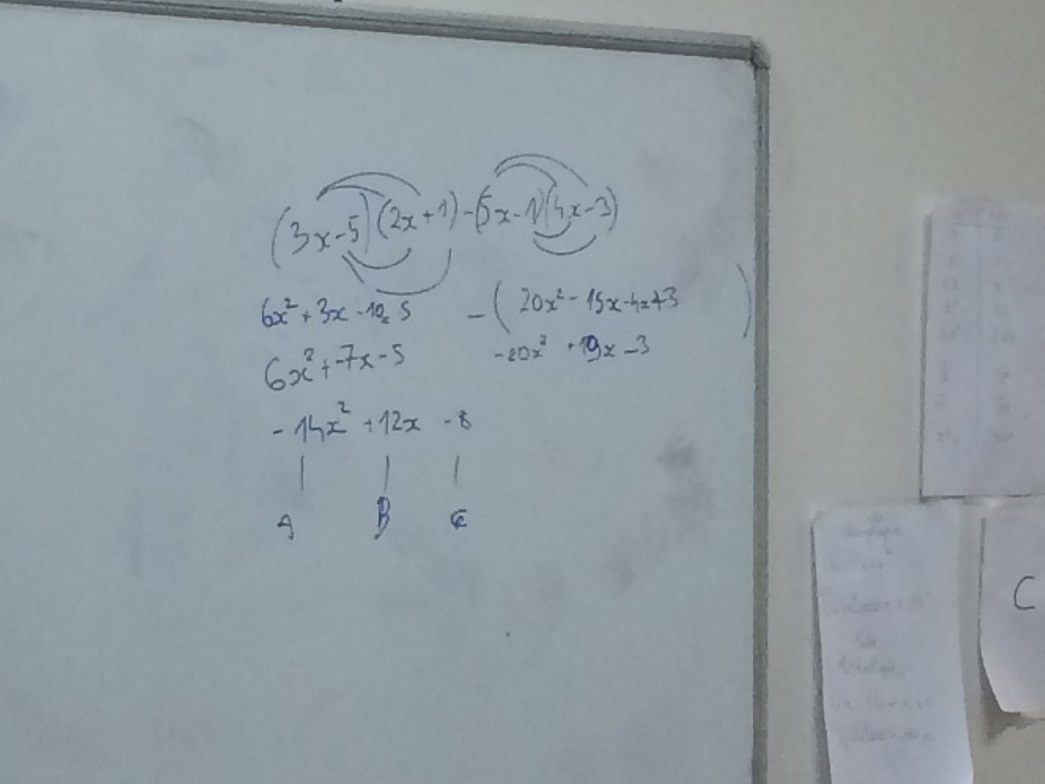 (3x-5)(2x+1)-(5x-1)(4x-3)
6x²+3x-10x 5 -(20x²-15x-4x+3)
6x²+-7x-5 -20x²+19x-3
-14x²+12x-8
A B C
C